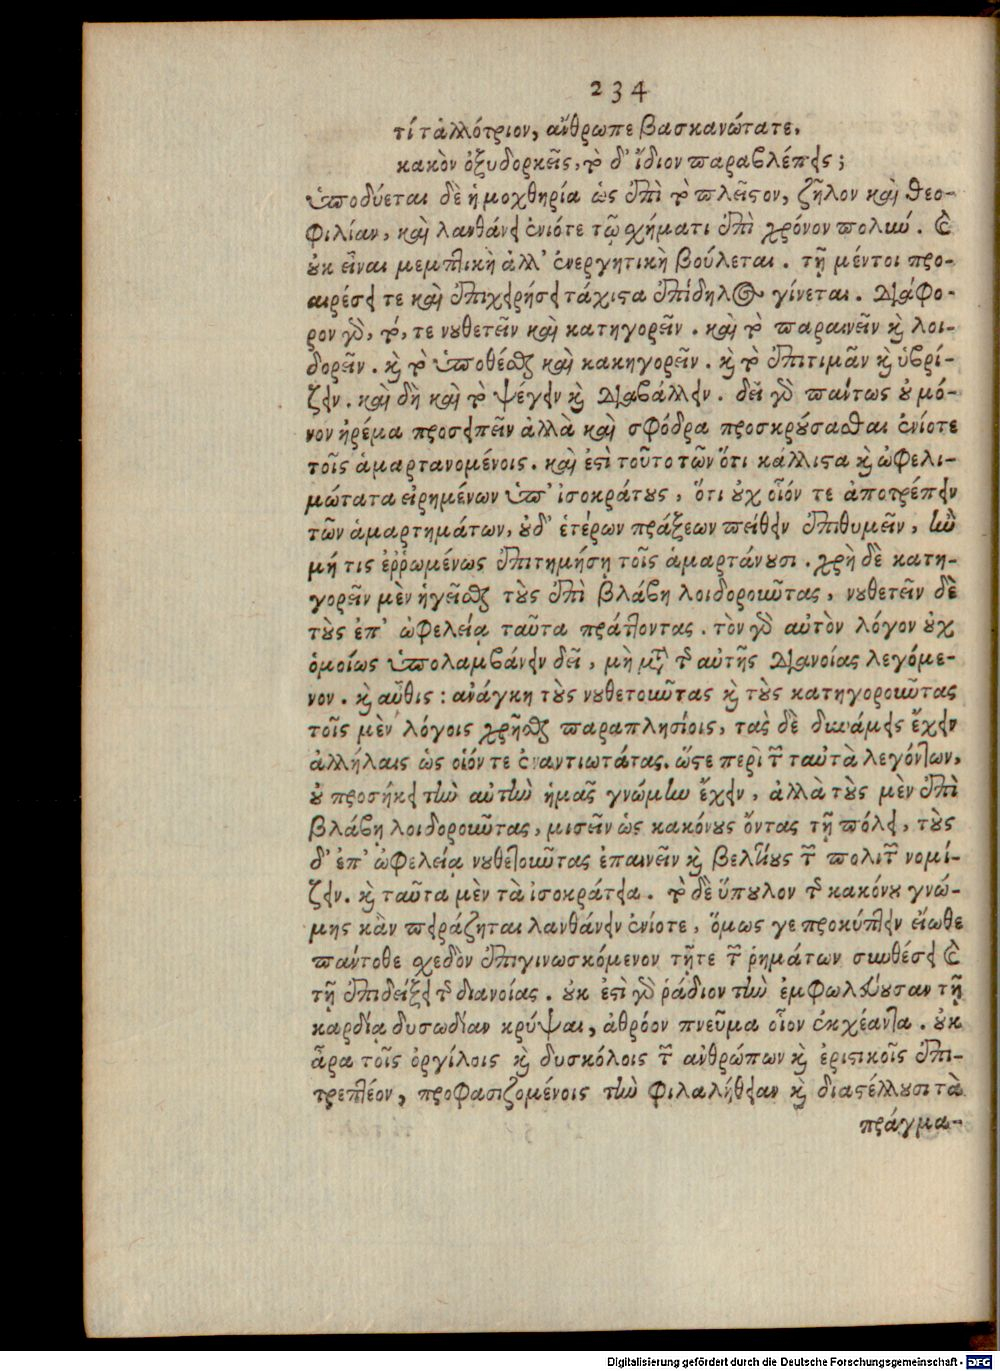 234
τί τἀλλότριον, ἄνθρωπε βασκανώτατε,
κακὸν ὀξυδορκεῖς, τὸ δ' ἴδιον παραβλέπεις;
ὑποδύεται δὲ ἡ μοχθηρία ὡς ἐπὶ τὸ πλεῖστον, ζῆλον καὶ θεο-
φιλίαν, καὶ λανθάνει ἐνίοτε τῷ σχήματι ἐπὶ χρόνον πολιω. καὶ
οὐκ εἶναι μεμπτικὴ ἀλλ' ἐνεργητικὴ βούλεται. τῇ μέντοι προ-
αιρέσει τε καὶ ἐπιχειρήσει τάχιστα ἐπίδηλος γίνεται. διάφο-
ρον γὰρ, τό, τε νουθετεῖν καὶ κατηγορεῖν. καὶ τὸ παραινεῖν καὶ λοι-
δορεῖν. καὶ τὸ ὑποθέσθαι καὶ κακηγορεῖν. καὶ τὸ ἐπιτιμᾶν καὶ ὑβρί-
ζειν. καὶ δὴ καὶ τὸ ψέγειν καὶ διαβάλλειν. δεῖ γὰρ πάντως οὐ μό-
νον ἠρέμα προσειπεῖν ἀλλὰ καὶ σφόδρα προσκρούσασθαι ἐνίοτε
τοῖς ἁμαρτανομένοις. καὶ ἐστὶ τοῦτο τῶν ὅτι κάλλιστα καὶ ὠφελι-
μώτατα εἰρημένων ὑπ' ἰσοκράτους, ὅτι οὐχ οἷόν τε ἀποτρέπειν
τῶν ἁμαρτημάτων, οὐδ' ἑτέρων πράξεων πείθειν ἐπιθυμεῖν, ἢν
μή τις ἐῤῥωμένως ἐπιτημήσῃ τοῖς ἁμαρτάνουσι. χρὴ δὲ κατη-
γορεῖν μὲν ἡγεῖσθαι τοὺς ἐπὶ βλάβῃ λοιδοροῦντας, νουθετεῖν δὲ
τοὺς ἐπ' ὠφελείᾳ ταῦτα πράττοντας. τὸν γὰρ αὐτὸν λόγον οὐχ
ὁμοίως ὑπολαμβάνειν δεῖ, μὴ μετὰ τῆς αὐτῆς διανοίας λεγόμε-
νον. καὶ αὖθις: ἀνάγκη τοὺς νουθετοῦντας καὶ τοὺς κατηγοροῦντας
τοῖς μὲν λόγοις χρῆσθαι παραπλησίοις, τὰς δὲ δυνάμεις ἔχειν
ἀλλήλαις ὡς οἷόν τε ἐναντιωτάτας. ὥστε περὶ τῶν ταὐτὰ λεγόντων,
οὐ προσήκει τὴν αὐτὴν ἡμᾶς γνώμην ἔχειν, ἀλλὰ τοὺς μὲν ἐπὶ
βλάβῃ λοιδοροῦντας, μισεῖν ὡς κακόνους ὄντας τῇ πόλει, τοὺς
δ' ἐπ' ὠφελείᾳ νουθετοῦντας ἐπαινεῖν καὶ βελτίους τῶν πολιτῶν νομί-
ζειν. καὶ ταῦτα μὲν τὰ ἰσοκράτεια. τὸ δὲ ὕπουλον τῆς κακόνου γνώ-
μης κἂν πειράζηται λανθάνειν ἐνίοτε, ὅμως γε προκύπτειν εἴωθε
πάντοθε σχεδὸν ἐπιγινωσκόμενον τῆτε τῶν ῥημάτων συνθέσει καὶ
τῇ ἐπιδείξει τῆς διανοίας. οὐκ ἐστὶ γὰρ ῥάδιον τὴν ἐμφωλεύουσαν τῇ
καρδίᾳ δυσωδίαν κρύψαι, ἀθρόον πνεῦμα οἷον ἐκχέαντα. οὐκ
ἄρα τοῖς ὀργίλοις καὶ δυσκόλοις τῶν ἀνθρώπων καὶ ἐριστικοῖς ἐπι-
τρεπτέον, προφασιζομένοις τὴν φιλαλήθειαν καὶ διαστέλλουσι τὰ
πράγμα-
Digitalisierung gefördert durch die Deutsche Forschungsgemeinschaft - DFG